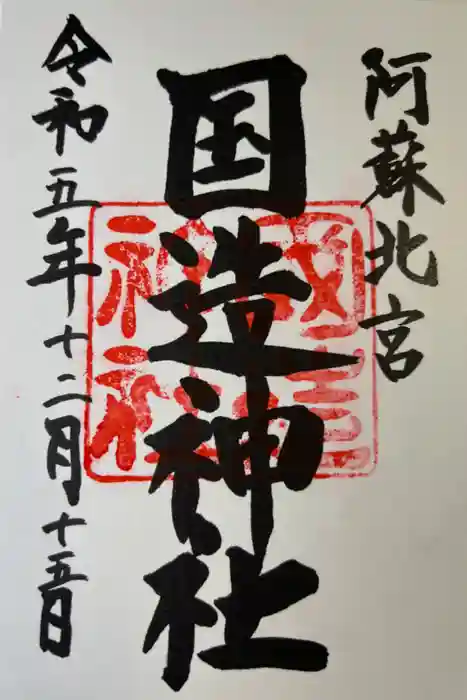 阿蘇北宮
国造神社
令和五年十二月十五日